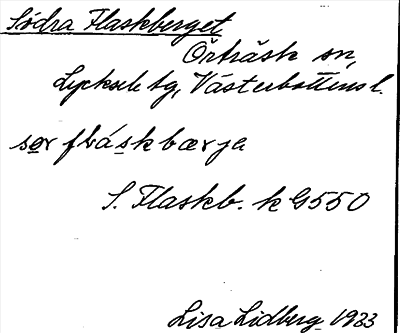 Södra Flaskberget
Örträsk sn,
Lycksele tg, Västerbottens l.
sør fláskbærja
S. Flaskb. k G550
Lisa Lidberg 1923